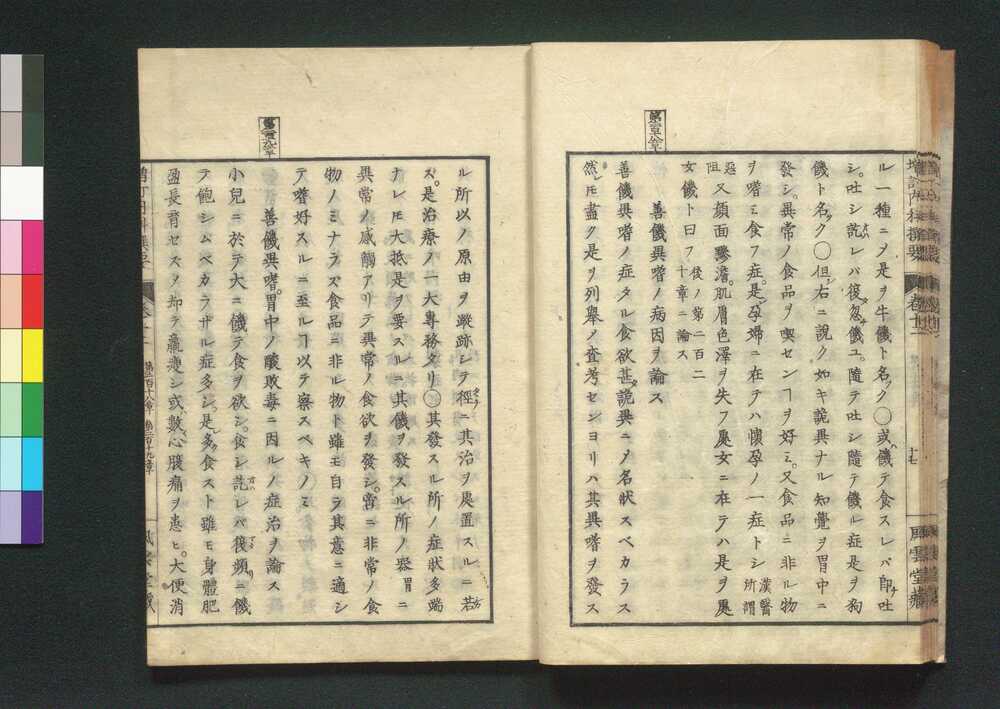 増訂内科撰要 卷十二
十七
風雲堂藏
ル一種ニノ是ヲ牛饑ト名ク〇或ハ饑テ食スレバ即チ吐
シ吐シ訖レバ復忽饑ユ隨テ吐シ隨テ饑ル症是ヲ狗
饑ト名ク〇但シ右ニ説ク如キ詭異ナル知覺ヲ胃中ニ
發シ異常ノ食品ヲ喫センヿヲ好ミ又食品ニ非ル物
ヲ嗜ミ食フ症是レ孕婦ニ在テハ懷孕ノ一症トシ漢醫所謂
惡阻又顔面黲澹肌膚色澤ヲ失フ處女ニ在テハ是ヲ處
女饑ト曰フ後ノ第二百二十章ニ論ス
第二百十八章
善饑異嗜ノ病因ヲ論ス
善饑異嗜ノ症タル食欲甚タ詭異ニノ名状スベカラス
然レ𪜈盡ク是ヲ列舉ノ査考センヨリハ其異嗜ヲ發ス
ル所以ノ原由ヲ蹤跡シテ徑チニ其治ヲ處置スルニ若カ
ズ是治療ノ一大專務タリ〇其發スル所ノ症状多端
ナレ𪜈大抵是ヲ要スルニ其饑ヲ發スル所ノ器胃ニ
異常ノ感觸アリテ異常ノ食欲ヲ發シ啻ニ非常ノ食
物ノミナラズ食品ニ非ル物ト雖モ自ラ其意ニ適シ
テ嗜好スルニ至ルヿ以テ察スベキノミ
第二百十九章
善饑異嗜胃中ノ酸敗毒ニ因ルノ症治ヲ論ス
小兒ニ於テ大ニ饑テ食ヲ欲シ食シ訖レバ復頻ニ饑
テ飽シムベカラザル症多シ是レ多ク食スト雖モ身體肥
盈長育セスノ却テ羸痩シ或ハ數心腹痛ヲ患ヒ大便消
増訂内科撰要 卷十二 第二百十八章 第二百十九章
風雲堂藏